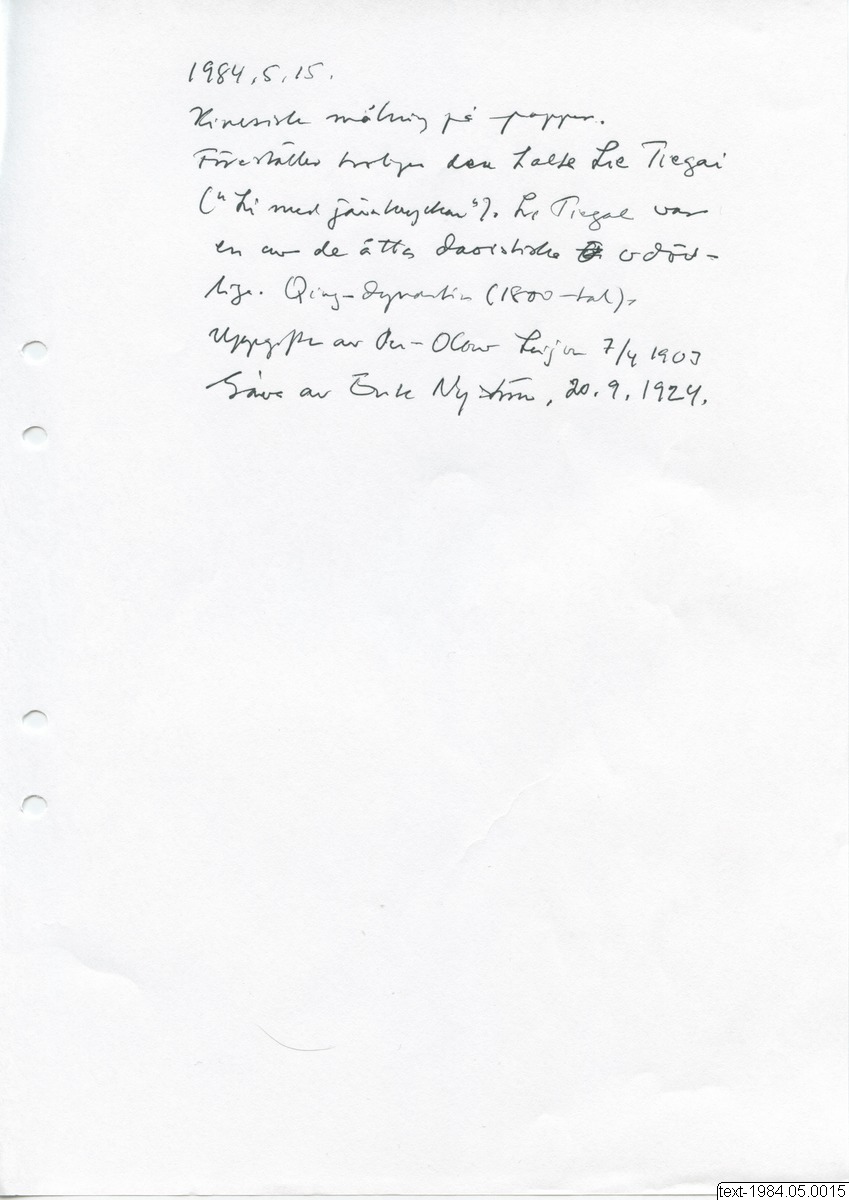 1984.5.15.
Kinesisk målning på papper.
Föreställer troligen den halte Lie Tiegai
("Li med järnkryckan"). Li Tiegai var
en av de åtta daoistiska odöd-
liga. Qing-dynastin (1800-tal).
Uppgifter av Per-Olow 7/4 1983
Gåva av Erik Nyström, 20.9.1924.
text-1984.05.0015